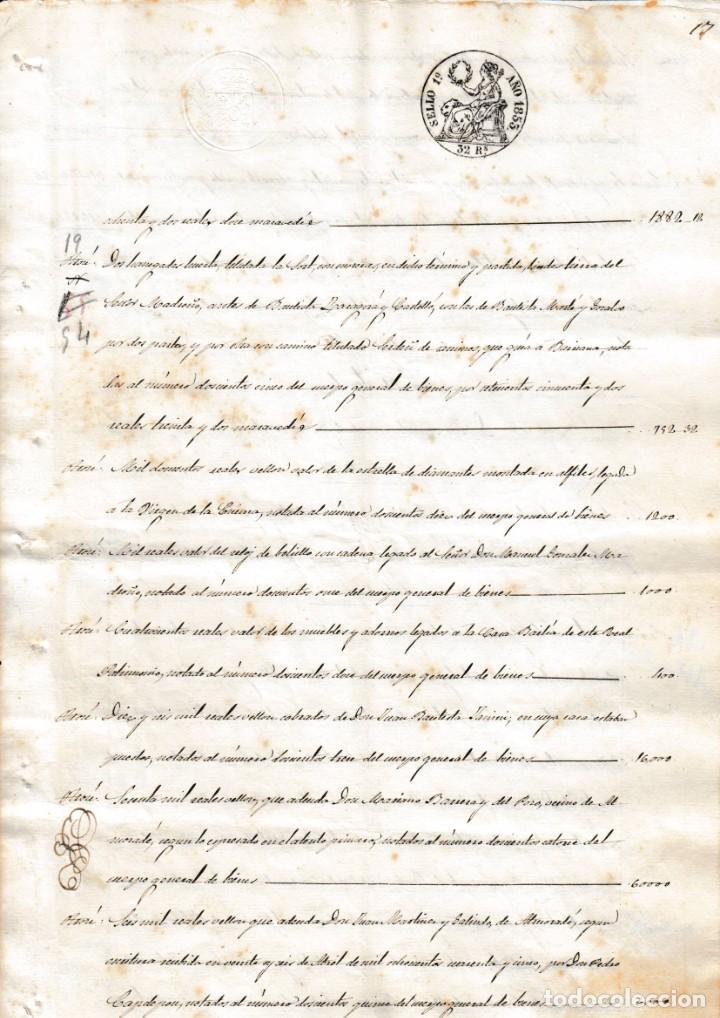 17
SELLO 1º AÑO 1855.
32 Rs
ochenta y dos reales doce maravedís 1882..12
19
Itení: Dos hanegadas huerta, titulada la Sort, con moreras, en dicho término y partida, lindes tierra del
54
Señor Madroño, antes de Bautista y Cardells, con las de Bautista Martí y
por dos partes, y por otra con camino titulado de, que guia á Bairana, nota
das al número doscientos cinco del cuerpo general de bienes, por setecientos cincuenta y dos
reales treinta y dos maravedís 752..32
Itení: Mil doscientos reales vellon valor de la estrella de diamantes montada en alfiler, legada
á la Vírgen de la, notada al número doscientos diez del cuerpo general de bienes 1200.
Itení: Mil reales valor del reloj de bolsillo con cadena, legado al Señor Don Manuel Gonzalez Ma-
droño, notado al número doscientos once del cuerpo general de bienes 1000
Itení: Cuatrocientos reales valor de los muebles y adornos legados á la Casa Bailía de este Real
Patrimonio, notado al número doscientos doce del cuerpo general de bienes 400.
Itení: Diez y seis mil reales vellon cobrados de Don Juan Bautista, en cuya casa estaban
puestos, notados al número doscientos trece del cuerpo general de bienes 16,000
Itení: Sesenta mil reales vellon, que adeuda Don Mariano Barrera y del Pozo, vecino de Al-
moradí, segun lo espresado en el atento primero, notados al número doscientos catorce del
cuerpo general de bienes 60000
Itení: Seis mil reales vellon que adeuda Don Juan Martinez y Galindo, de Almoradí, segun
escritura recibida en veinte y seis de Abril de mil ochocientos cuarenta y cinco, por Don Pedro
Capdepon, notados al número doscientos quince del cuerpo general de bienes
todocoleccion.net